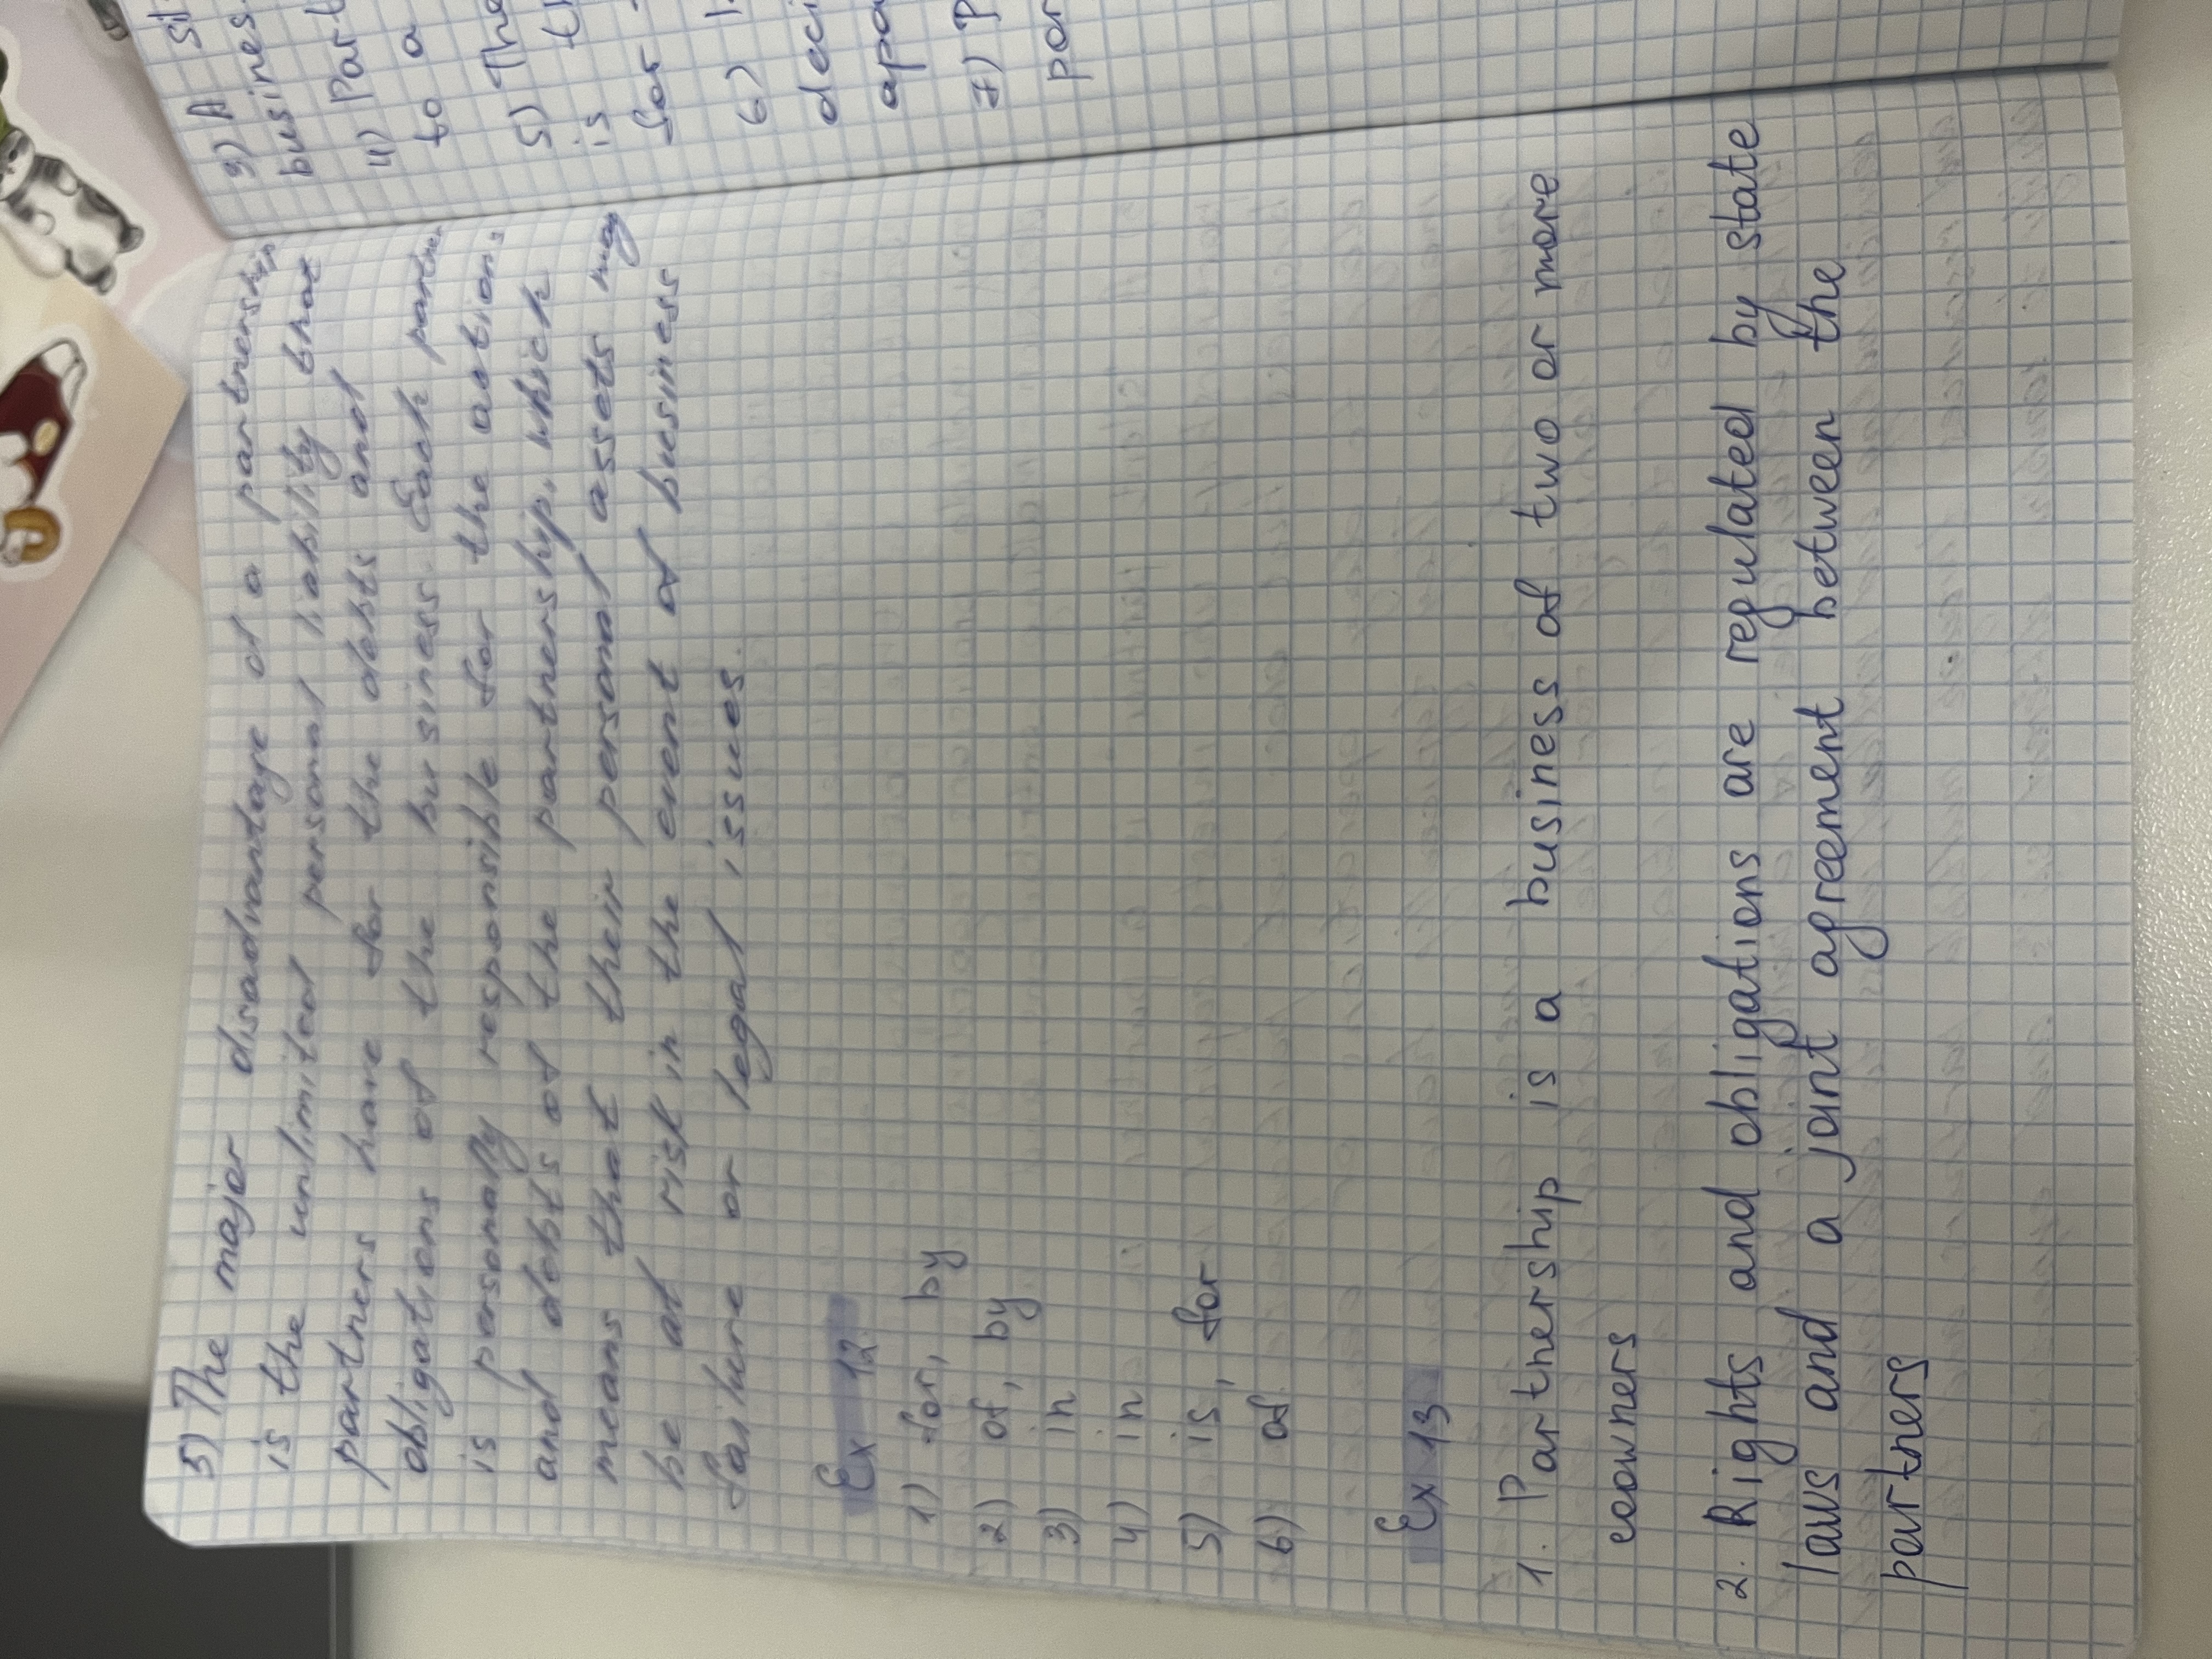 5) The major disadvantage of a partnership
is the unlimited personal liability that
partners have for the debts and
obligations of the business. Each partner
is personally responsible for the actions
and debts of the partnership, which
means that their personal assets may
be at risk in the event of bussiness
failure or legal issues.
Ex 12
1) for, by
2) of, by
3) in
4) in
5) is, for
6) of
Ex 13
1. Partnership is a business of two or more
coowners
2. Rights and obligations are regulated by state
laws and a joint agreement between the
partners
3) A
busines
4) Part
to a
5) The
is
for
6)
deci
apa
7) P
por